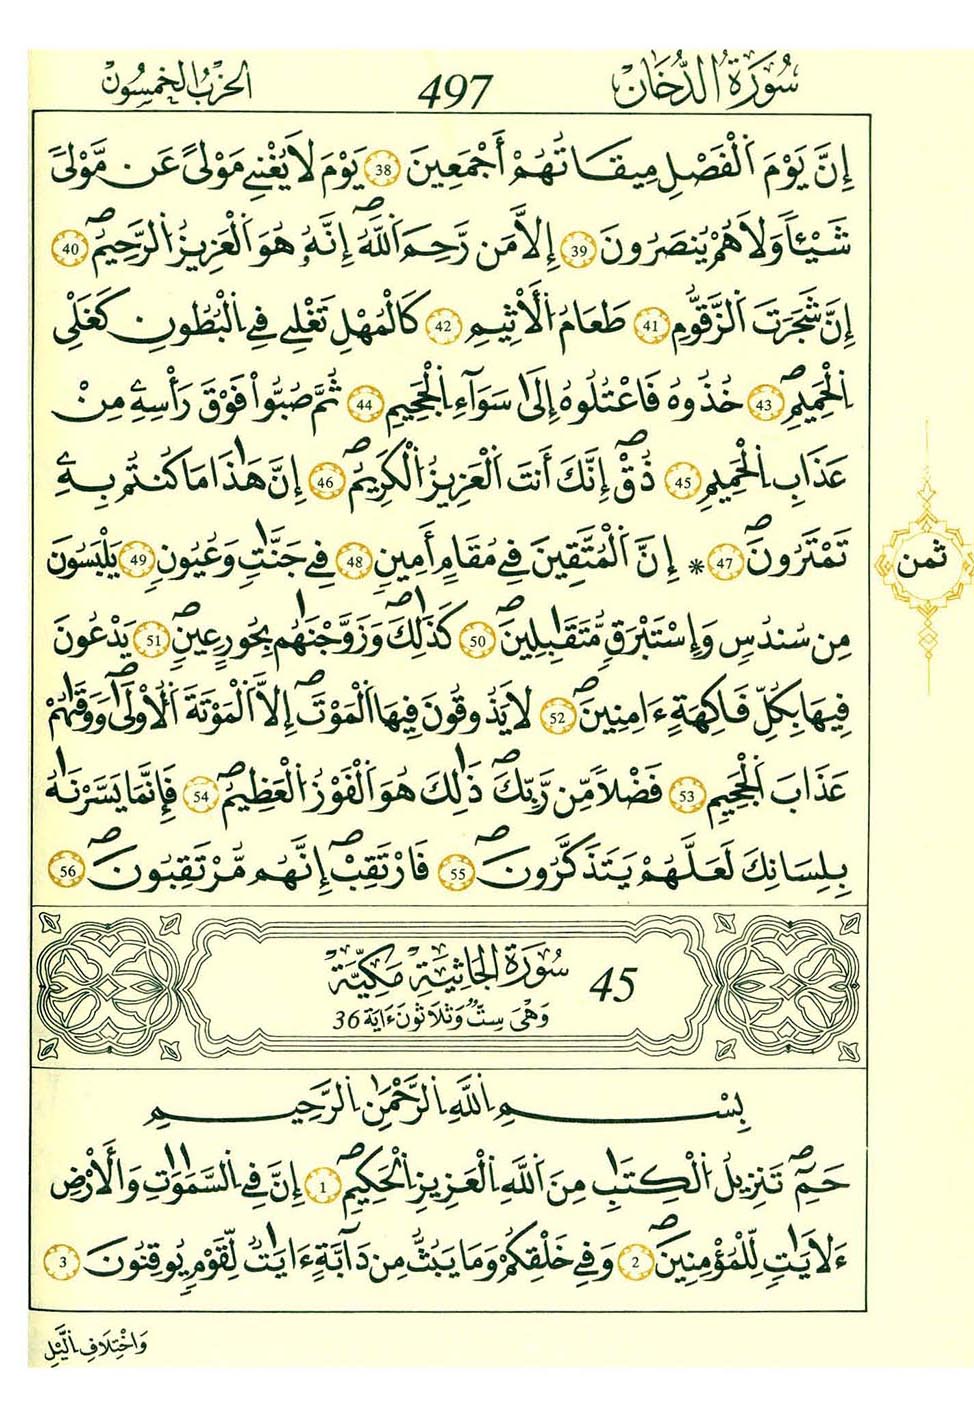 سُورَةُ الدُّخَانِ
497
الحِزْبُ الخَمْسُونَ
إِنَّ يَوْمَ اَ۬لْفَصْلِ مِيقَاتُهُمُۥٓ أَجْمَعِينَ 38 يَوْمَ لَا يُغْنِے مَوْلىً عَن مَّوْلىً
شَيْـٔاً وَلَا هُمْ يُنصَرُونَ 39 إِلَّا مَن رَّحِمَ اَ۬للَّهُ إِنَّهُۥ هُوَ اَ۬لْعَزِيزُ اُ۬لرَّحِيمُ 40
إِنَّ شَجَرَتَ اَ۬لزَّقُّومِ 41 طَعَامُ اُ۬لْأَثِيمِ 42 كَالْمُهْلِ تَغْلِے فِے اِ۬لْبُطُونِ كَغَلْيِ
اِ۬لْحَمِيمِ 43 خُذُوهُ فَاعْتُلُوهُ إِلَىٰ سَوَآءِ اِ۬لْجَحِيمِ 44 ثُمَّ صُبُّواْ فَوْقَ رَأْسِهِۦ مِنْ
عَذَابِ اِ۬لْحَمِيمِ 45 ذُقْ إِنَّكَ أَنتَ اَ۬لْعَزِيزُ اُ۬لْكَرِيمُ 46 إِنَّ هَٰذَا مَا كُنتُم بِهِۦ
تَمْتَرُونَ 47 * إِنَّ اَ۬لْمُتَّقِينَ فِے مُقَامٍ أَمِينٍ 48 فِے جَنَّٰتٍ وَعُيُونٍ 49 يَلْبَسُونَ
ثمن
مِن سُندُسٍ وَإِسْتَبْرَقٍ مُّتَقَٰبِلِينَ 50 كَذَٰلِكَ وَزَوَّجْنَٰهُم بِحُورٍ عِينٍ 51 يَدْعُونَ
فِيهَا بِكُلِّ فَٰكِهَةٍ ءَامِنِينَ 52 لَا يَذُوقُونَ فِيهَا اَ۬لْمَوْتَ إِلَّا اَ۬لْمَوْتَةَ اَ۬لُْاولَىٰ وَوَقَىٰهُمْ
عَذَابَ اَ۬لْجَحِيمِ 53 فَضْلاً مِّن رَّبِّكَ ذَٰلِكَ هُوَ اَ۬لْفَوْزُ اُ۬لْعَظِيمُ 54 فَإِنَّمَا يَسَّرْنَٰهُ
بِلِسَانِكَ لَعَلَّهُمْ يَتَذَكَّرُونَ 55 فَارْتَقِبْ إِنَّهُم مُّرْتَقِبُونَ 56
45 سُورَةُ الجَاثِيَةِ مَكِّيَّةٌ
وَهْيَ سِتٌّ وَثَلَاثُونَ ءَايَة 36
بِسْمِ اِ۬للَّهِ اِ۬لرَّحْمَٰنِ اِ۬لرَّحِيمِ
حَمِٓ تَنزِيلُ اُ۬لْكِتَٰبِ مِنَ اَ۬للَّهِ اِ۬لْعَزِيزِ اِ۬لْحَكِيمِ 1 إِنَّ فِے اِ۬لسَّمَٰوَٰتِ وَالْأَرْضِ
ءَلَايَٰتٍ لِّلْمُؤْمِنِينَ 2 وَفِے خَلْقِكُمْ وَمَا يَبُثُّ مِن دَآبَّةٍ ءَايَٰتٌ لِّقَوْمٍ يُوقِنُونَ 3
وَاخْتِلَافِ اِ۬لَّيْلِ